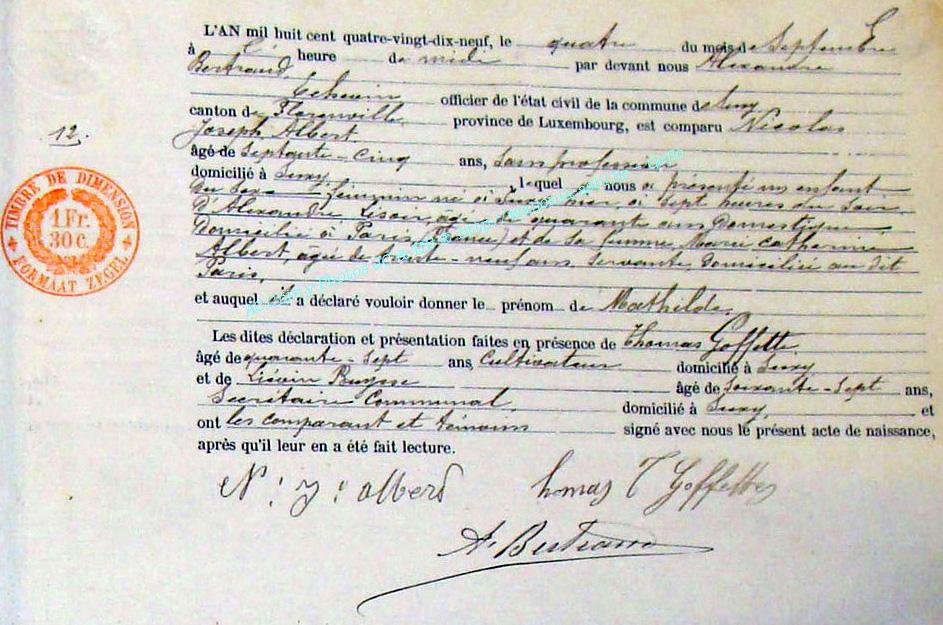 L'AN mil huit cent quatre-vingt-dix-neuf, le quatre du mois de Septembre
à heure de midi par devant nous Alexandre
Bertrand,
Echevin officier de l'état civil de la commune de Suxy
12. canton de Florenville province de Luxembourg, est comparu Nicolas
Joseph Albert
âgé de Septante-Cinq ans, Sans profession
domicilié à Suxy lequel nous a présenté un enfant
du sexe féminin né à Suxy hier à Sept heures du Soir
D'Alexandre âgé de quarante ans Domestique
Domicilié à Paris (France) et de sa femme Marie Catherine
Albert, âgée de trente-neuf ans Servante Domicilié au dit
Paris,
et auquel il a déclaré vouloir donner le prénom de Mathilde.
Les dites déclaration et présentation faites en présence de Thomas Goffette
âgé de quarante-Sept ans Cultivateur domicilié à Suxy
et de Liévin Buysse âgé de Soixante-Sept ans,
Secrétaire Communal, domicilié à Suxy, et
ont les comparant et témoins signé avec nous le présent acte de naissance,
après qu'il leur en a été fait lecture.
N: J: albert Thomas Goffette
A. Bertrand
TIMBRE DE DIMENSION
1 Fr.
30 C.
FORMAAT ZEGEL